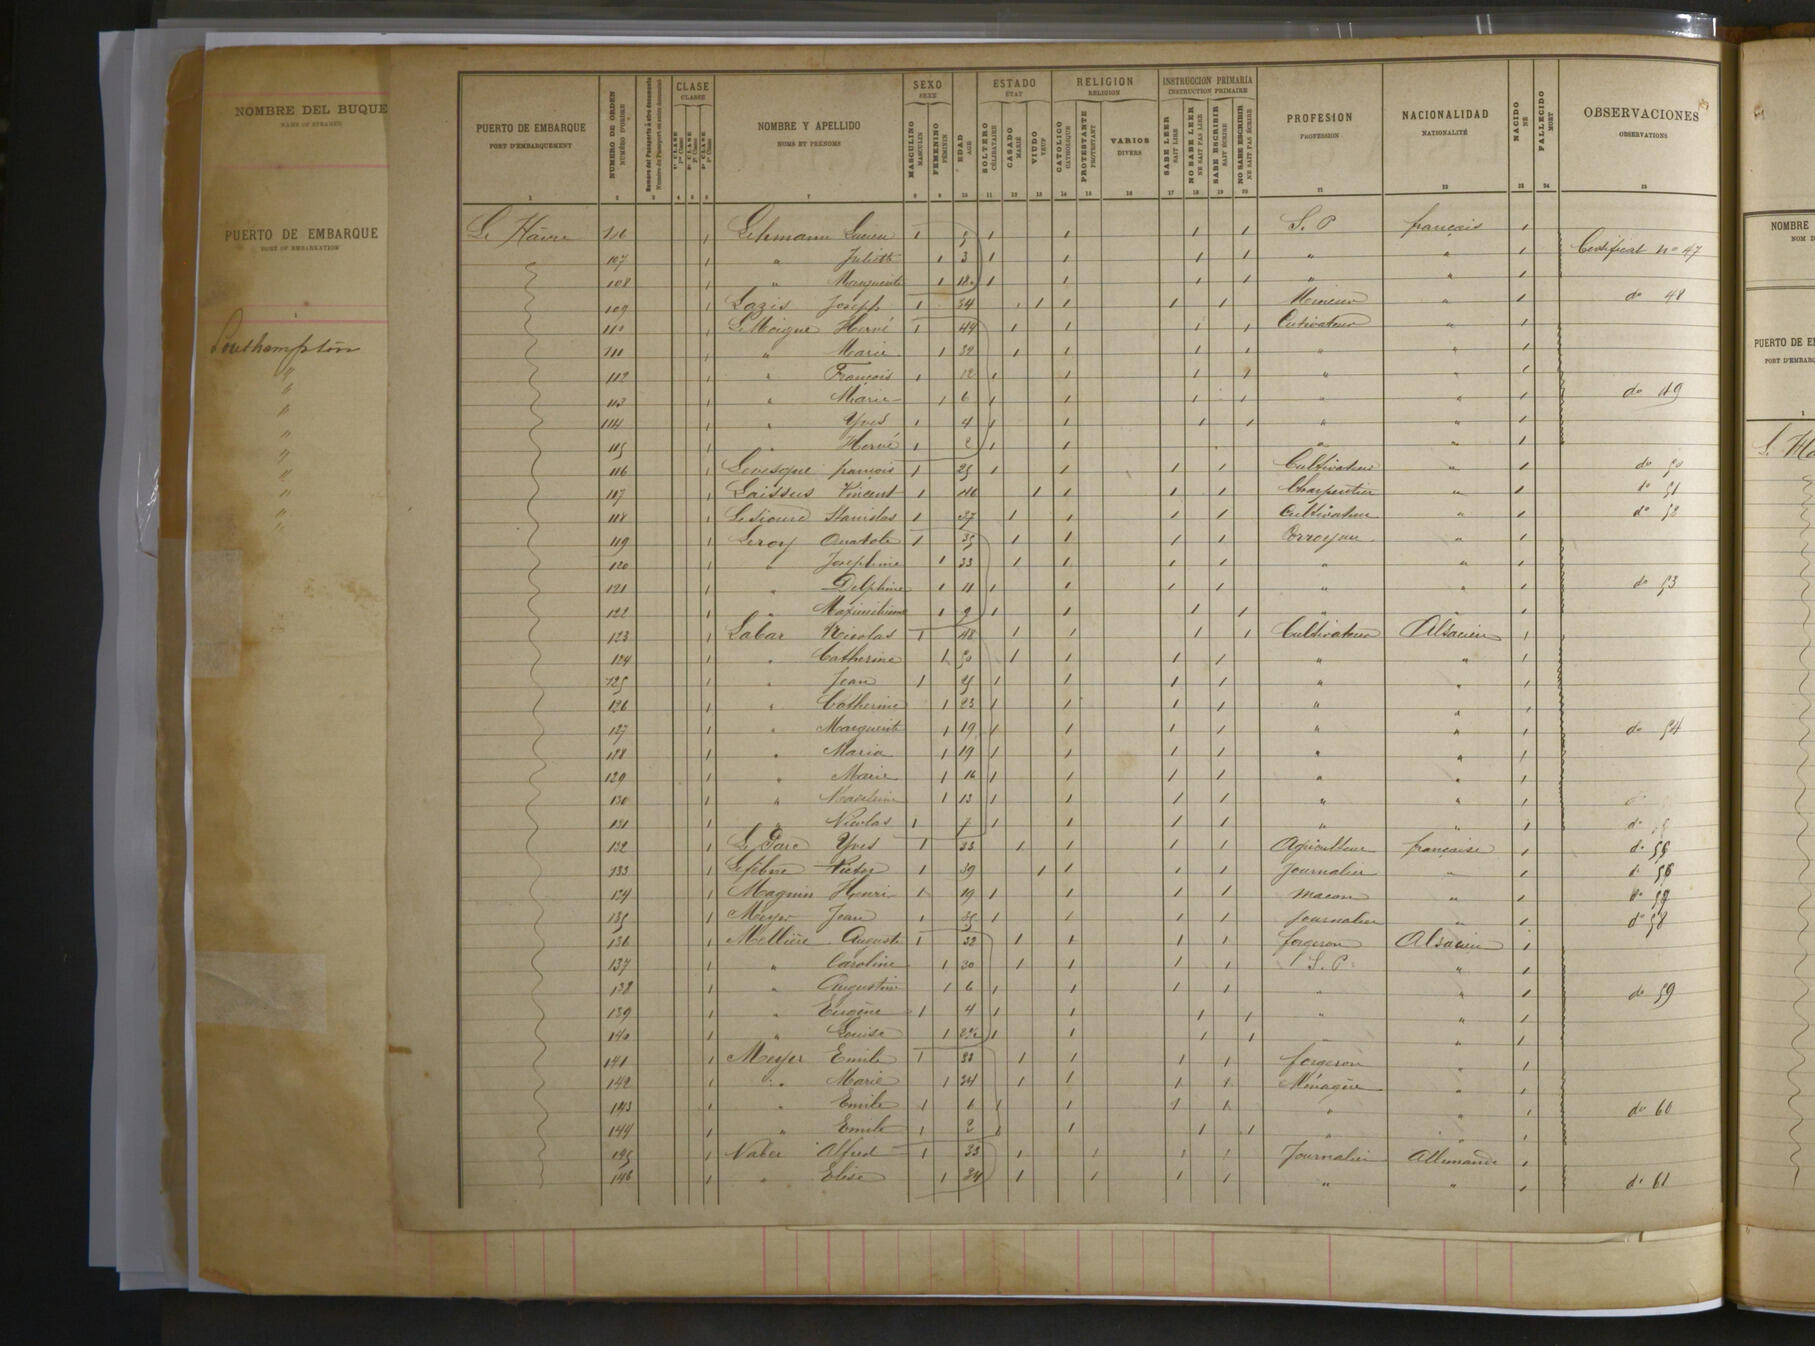 NOMBRE DEL BUQUE
NAME OF STEAMER
PUERTO DE EMBARQUE
PORT OF EMBARKATION
1
Southampton
"
"
"
"
"
"
"
"
PUERTO DE EMBARQUE NUMERO DE ORDEN Numero del Pasaporte ó otro documento CLASE NOMBRE Y APELLIDO SEXO EDAD ESTADO RELIGION INSTRUCCION PRIMARIA PROFESION NACIONALIDAD NACIDO FALLECIDO OBSERVACIONES
PORT D'EMBARQUEMENT NUMÉRO D'ORDRE CLASSE NOMS ET PRÉNOMS SEXE AGE ÉTAT RELIGION INSTRUCTION PRIMAIRE PROFESSION NATIONALITÉ NÉ MORT OBSERVATIONS
1ª CLASE 2ª CLASE 3ª CLASE MASCULINO FEMENINO SOLTERO CASADO VIUDO CATOLICO PROTESTANTE VARIOS SABE LEER NO SABE LEER SABE ESCRIBIR NO SABE ESCRIBIR
1re Classe 2e Classe 3e Classe MASCULIN FÉMININ CÉLIBATAIRE MARIÉ VEUF CATHOLIQUE PROTESTANT DIVERS SAIT LIRE NE SAIT PAS LIRE SAIT ÉCRIRE NE SAIT PAS ÉCRIRE
1 2 3 4 5 6 7 8 9 10 11 12 13 14 15 16 17 18 19 20 21 22 23 24 25
Le Hâvre 106 1 Lehmann Lucien 1 5 1 1 1 1 S. P français 1
107 1 " Juliette 1 3 1 1 1 1 " " 1 Certificat no 47
108 1 " Marguerite 1 1 1 1 1 " " 1
109 1 Lazis Joseph 1 34 1 1 1 1 Mineur " 1 do 48
110 1 Le Moigne Hervé 1 44 1 1 1 1 Cutivateur " 1
111 1 " Marie 1 32 1 1 1 1 " " 1
112 1 " François 1 12 1 1 1 1 " " 1
113 1 " Marie 1 6 1 1 1 1 " " 1 do 49
114 1 " Yves 1 4 1 1 1 1 " " 1
115 1 " Hervé 1 2 1 1 " " 1
116 1 Levesque françois 1 25 1 1 1 1 Cultivateur " 1 do 50
117 1 Laissus Vincent 1 40 1 1 1 1 Charpentier " 1 do 51
118 1 Stanislas 1 37 1 1 1 1 Cultivateur " 1 do 52
119 1 Leroy Anatole 1 35 1 1 1 1 Corroyeur " 1
120 1 " Josephine 1 33 1 1 1 1 " " 1
121 1 " Delphine 1 11 1 1 1 1 " " 1 do 53
122 1 " 1 9 1 1 1 1 " " 1
123 1 Labar Nicolas 1 48 1 1 1 1 Cultivateur Alsacien 1
124 1 " Catherine 1 50 1 1 1 1 " " 1
125 1 " Jean 1 25 1 1 1 1 " " 1
126 1 " Catherine 1 23 1 1 1 1 " " 1
127 1 " Marguerite 1 19 1 1 1 1 " " 1 do 54
128 1 " Maria 1 19 1 1 1 1 " " 1
129 1 " Marie 1 16 1 1 1 1 " " 1
130 1 " Madeleine 1 13 1 1 1 1 " " 1
131 1 " Nicolas 1 7 1 1 1 1 " " 1 do
132 1 Le Parc Yves 1 33 1 1 1 1 Agriculteur française 1 do 55
133 1 Lefebvre Victor 1 39 1 1 1 1 Journalier " 1 do 56
134 1 Magnin Henri 1 19 1 1 1 1 macon " 1 do
135 1 Meyer Jean 1 35 1 1 1 1 Journalier " 1 do 58
136 1 Mellière Auguste 1 32 1 1 1 1 forgeron Alsacien 1
137 1 " Caroline 1 30 1 1 1 1 S. P. " 1
138 1 " Augustine 1 6 1 1 1 1 " " 1 do 59
139 1 " Eugène 1 4 1 1 1 1 " " 1
140 1 " Louise 1 1 1 1 1 " " 1
141 1 Meyer Emile 1 33 1 1 1 1 forgeron " 1
142 1 " Marie 1 24 1 1 1 1 Ménagère " 1
143 1 " Emile 1 6 1 1 1 1 " " 1 do 60
144 1 " Emile 1 2 1 1 1 1 " " 1
145 1 Naber Alfred 1 33 1 1 1 1 Journalier Allemande 1
146 1 " Elise 1 34 1 1 1 1 " " 1 do 61
NOMBRE
NOM D
PUERTO DE E
PORT D'EMBARQ
1
L. Ha